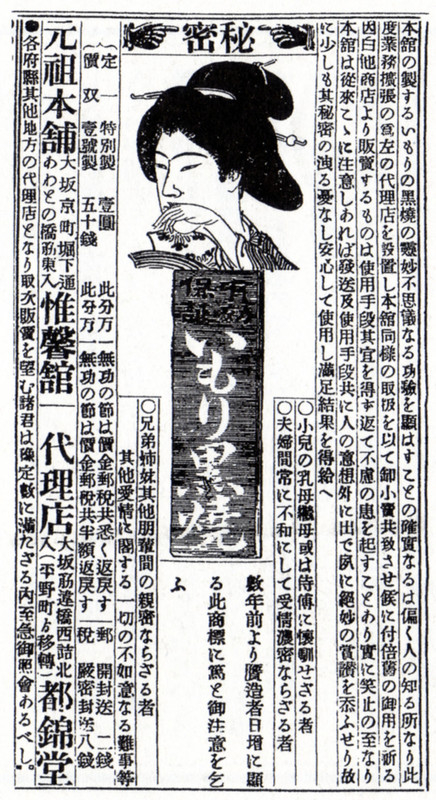 本舘の製するいもりの黒燒の靈妙不思議なる功驗を顯はすことの確實なるは偏く人の知る所なり此
度業務擴張の爲左の代理店を設置し本舘同樣の取扱を以て卸小賣共致させ候に付倍舊の御用を祈る
因白他商店より販賣するものは使用手段其宜を得ず返て不慮の患を起すことあり實に笑止の至なり
本舘は從來こゝに注意しあれば發送及使用手段共に人の意想外に出で夙に絕妙の賞讚を忝ふせり故
に少しも其秘密の洩る憂なし安心して使用し滿足結果を得給へ
秘密
有効
保証
いもり黒燒
○小兒の乳母繼母或は侍傅に懷馴せざる者
○夫婦間常に不和にして受情濃密ならざる者
數年前より贋造者日增に顯
る此商標に篤と御注意を乞
ふ
○兄弟姉妹其他朋輩間の親密ならざる者
其他愛情に關する一切の不如意なる難事等
定價
一特別製 壹圓 此分万一無功の節は價金郵稅共悉く返戾す
双壹號製 五十錢 此分万一無功の節は價金郵稅共半額返戾す
郵稅 開封送 二錢
嚴密封送八錢
元祖本舖 大坂京町堀下通 あわとの橋筋東入 惟馨舘
代理店 大坂筋違橋西詰北入(平野町ゟ移轉) 都錦堂
●各府縣其他地方の代理店となり取次販賣を望む諸君は豫定數に滿たざる内至急御照會あるべし。